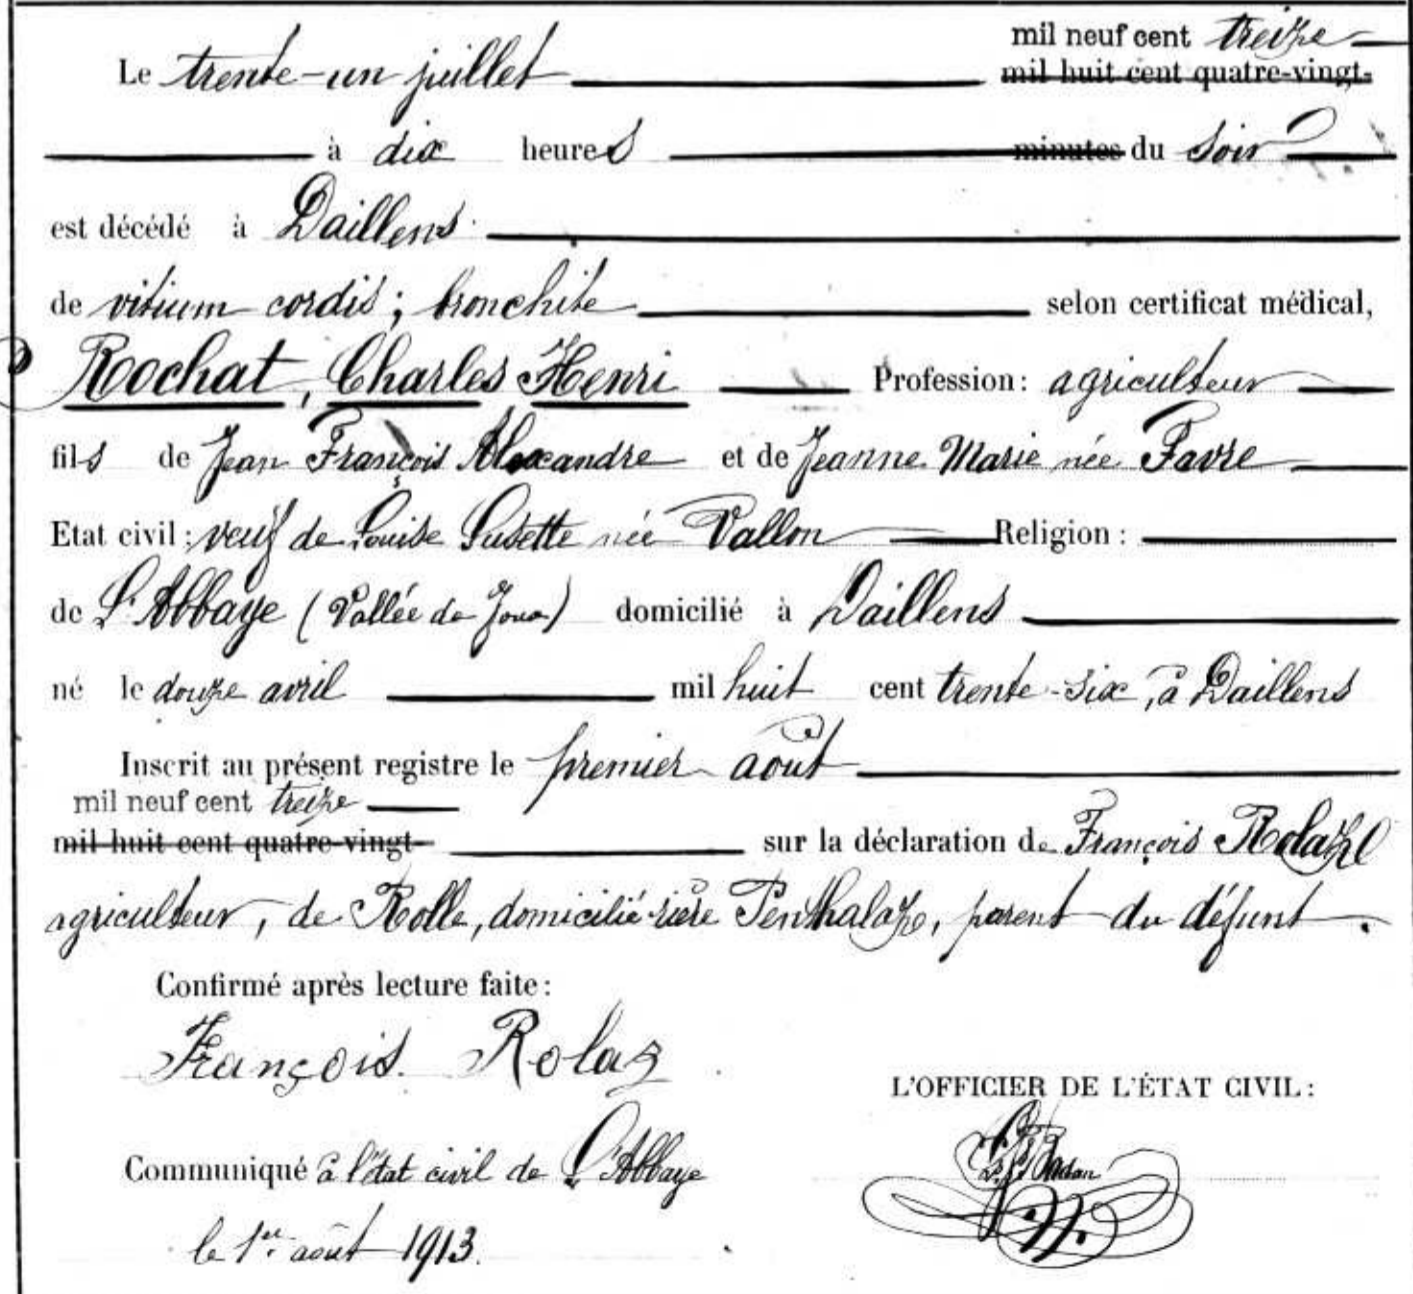 mil neuf cent treize
Le trente-un juillet mil huit cent quatre-vingt-
à dix heures minutes du soir
est décédé à Daillens
de vitium cordis; bronchite selon certificat médical,
Rochat, Charles Henri Profession: agriculteur
fils de Jean François Alexandre et de Jeanne Marie née Favre
Etat civil: veuf de Louise Susette née Vallon Religion:
de L'Abbaye (Vallée de Joux) domicilié à Daillens
né le douze avril mil huit cent trente-six, à Daillens
Inscrit au présent registre le premier août
mil neuf cent treize
mil huit cent quatre-vingt- sur la déclaration de François Rolaz
agriculteur, de Rolle, domicilié rière Penthalaz, parent du défunt.
Confirmé après lecture faite:
François Rolaz
L'OFFICIER DE L'ÉTAT CIVIL:
Communiqué à l'état civil de L'Abbaye
le 1er août 1913.